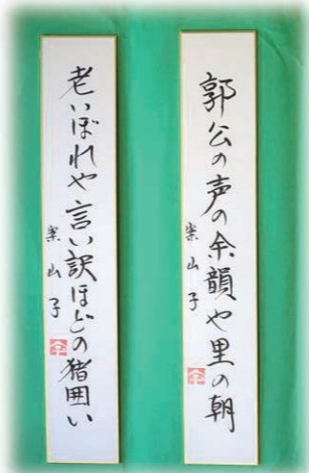 郭公の声の余韻や里の朝
楽山子
老いぼれや言い訳ほどの猪囲い
楽山子